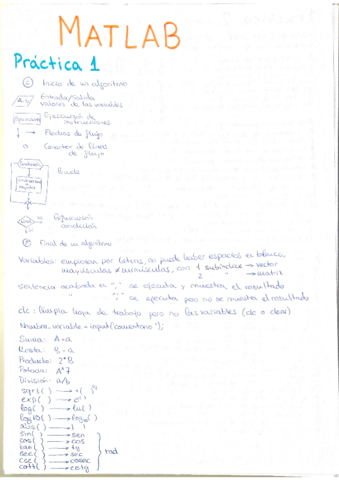 MATLAB
Práctica 1
Inicio de un algoritmo
A,B Entrada/Salida
valores de las variables
Operaciones Ejecución de
instrucciones
Flechas de flujo
Conector de líneas
de flujo
Bucle
Bifurcación
condición
Final de un algoritmo
Variables: empiezan por letras, no puede haber espacios en blanco,
mayúsculas ≠ minúsculas, con 1 subíndice → vector
2 " → matriz
sentencia acabada en "," se ejecuta y muestra el resultado
" ";" se ejecuta pero no se muestra el resultado
clc: limpia hoja de trabajo pero no las variables (clc o clear)
Nombre_variable = input('comentario');
Suma: A+a
Resta: B-a
Producto: 2*B
Potencia: A^7
División: a/b
sqrt( )
exp( )
log( ) → ln( )
log10( )
abs( ) → | |
sin( ) → sen
cos( ) → cos
tan( ) → tg
sec( ) → sec
csc( ) → cosec
cot( ) → cotg
rad